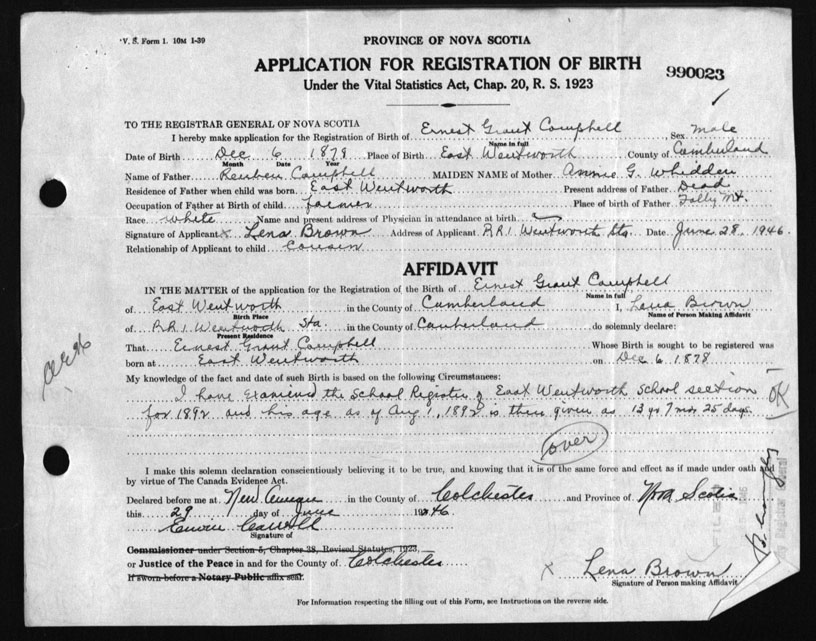 V. S. Form 1. 10M 1-39
PROVINCE OF NOVA SCOTIA
APPLICATION FOR REGISTRATION OF BIRTH
990023
Under the Vital Statistics Act, Chap. 20, R. S. 1923
TO THE REGISTRAR GENERAL OF NOVA SCOTIA
I hereby make application for the Registration of Birth of Ernest Grant Campbell Sex Male
Name in full
Date of Birth Dec 6 1878 Place of Birth East Wentworth County of Cumberland
Month Date Year
Name of Father Reuben Campbell MAIDEN NAME of Mother Annie G. Whidden
Residence of Father when child was born East Wentworth Present address of Father Dead
Occupation of Father at Birth of child farmer Place of birth of Father Folly Mt.
Race White Name and present address of Physician in attendance at birth
Signature of Applicant x Lena Brown Address of Applicant R.R.1. Wentworth Sta. Date June 28, 1946.
Relationship of Applicant to child Cousin
AFFIDAVIT
IN THE MATTER of the application for the Registration of the Birth of Ernest Grant Campbell
Name in full
of East Wentworth in the County of Cumberland I, Lena Brown
Birth Place Name of Person Making Affidavit
of R.R.1 Wentworth Sta. in the County of Cumberland do solemnly declare:
Present Residence
That Ernest Grant Campbell Whose Birth is sought to be registered was
born at East Wentworth on Dec 6, 1878
My knowledge of the fact and date of such Birth is based on the following Circumstances:
I have examined the School Register of East Wentworth School section
for 1892 and his age as of Aug 1, 1892 is then given as 13 yrs 7 mos 25 days.
OK
over
I make this solemn declaration conscientiously believing it to be true, and knowing that it is of the same force and effect as if made under oath and
by virtue of The Canada Evidence Act.
Declared before me at New Annan in the County of Colchester and Province of Nova Scotia
this 29 day of June 1946
Signature of
Commissioner under Section 5, Chapter 38, Revised Statutes, 1923,
or Justice of the Peace in and for the County of Colchester
If sworn before a Notary Public affix seal.
x Lena Brown
Signature of Person making Affidavit
For Information respecting the filling out of this Form, see Instructions on the reverse side.